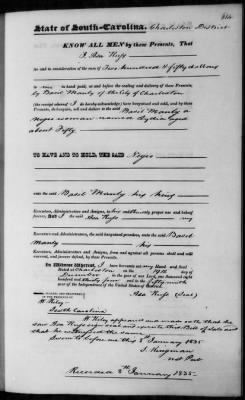 State of South-Carolina. Charleston District
KNOW ALL MEN by these Presents, That
I Ann Huff
for and in consideration of the sum of Two hundred & fifty dollars
to me in hand paid, at and before the sealing and delivery of these Presents,
by Basil Manly of the City of Charleston
(the receipt whereof I do hereby acknowledge) have bargained and sold, and by these
Presents, do bargain, sell and deliver to the said Basil Manly a
negro woman named Lydia aged
about Fifty
TO HAVE AND TO HOLD, THE SAID Negro
unto the said Basil Manly his
Executors, Administrators and Assigns, to his and their only proper use and behoof
forever. And I the said Ann Huff my
Executors and Administrators, the said bargained premises, unto the said Basil
Manly his
Executors, Administrators and Assigns, from and against all persons shall and will
warrant, and forever defend, by these Presents.
In Witness Whereof, I have hereunto set my Hand and Seal
Dated at Charleston on the day of
December in the year of our Lord, one thousand eight
hundred and thirty four and in the fifty ninth
year of the Independence of the United States of America.
SIGNED, SEALED AND DELIVERED
IN THE PRESENCE OF
Ann Huff (Seal)
W Riley
South Carolina
W Riley appeared and made oath that he
saw Ann Huff sign seal and execute this Bill of Sale and
that he witnessed the same
Sworn to before me this 8th January 1835
Not Pub
Recorded 8th January 1835.